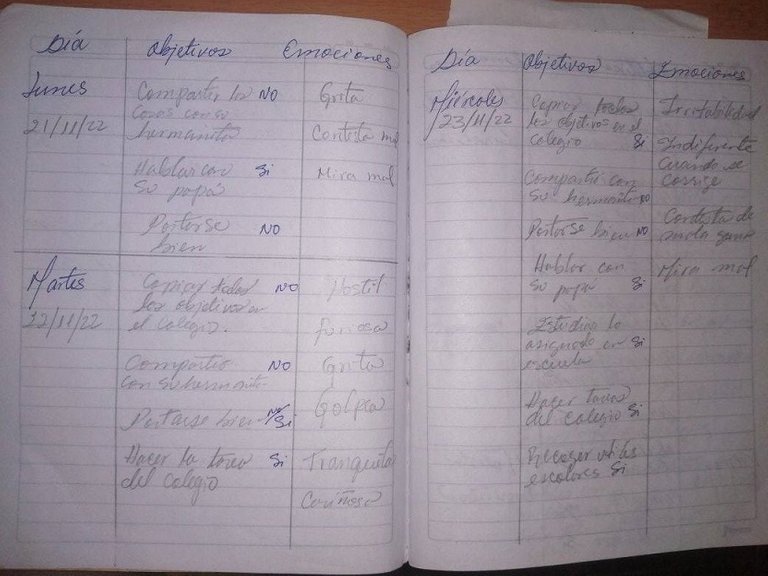 Día Objetivos Emociones
Lunes
21/11/22
Compartir las NO
cosas con su
hermanito
Hablar con Si
su papá
Portarse NO
bien
Grita
Contesta mal
Mira mal
Martes
22/11/22
Copiar todos NO
los objetivos en
el colegio.
Compartir NO
con su hermanito
Portarse bien NO/Si
Hacer la tarea Si
del colegio
Hostil
furiosa
Grita
Golpea
Tranquila
Cariñosa
Día Objetivos Emociones
Miércoles
23/11/22
Copiar todos
los objetivos en el
colegio Si
Compartir con
su hermanito NO
Portarse bien NO
Hablar con
su papá Si
Estudiar lo
asignado en Si
escuela
Hacer tarea
del colegio Si
Recoger útiles
escolares Si
Irritabilidad
Indiferente
Cuando se
corrige
Contesta de
Mira mal